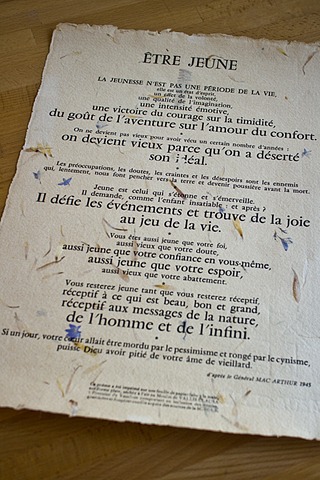 ÊTRE JEUNE
LA JEUNESSE N'EST PAS UNE PÉRIODE DE LA VIE,
elle est un état d'esprit,
un effet de la volonté,
une qualité de l'imagination,
une intensité émotive,
une victoire du courage sur la timidité,
du goût de l'aventure sur l'amour du confort.
On ne devient pas vieux pour avoir vécu un certain nombre d'années :
on devient vieux parce qu'on a déserté
son idéal.
Les préoccupations, les doutes, les craintes et les désespoirs sont les ennemis
qui, lentement, nous font pencher vers la terre et devenir poussière avant la mort.
Jeune est celui qui s'étonne et s'émerveille.
Il demande, comme l'enfant insatiable : et après ?
Il défie les événements et trouve de la joie
au jeu de la vie.
Vous êtes aussi jeune que votre foi,
aussi vieux que votre doute,
aussi jeune que votre confiance en vous-même,
aussi jeune que votre espoir,
aussi vieux que votre abattement.
Vous resterez jeune tant que vous resterez réceptif,
réceptif à ce qui est beau, bon et grand,
réceptif aux messages de la nature,
de l'homme et de l'infini.
Si un jour, votre cœur allait être mordu par le pessimisme et rongé par le cynisme,
puisse Dieu avoir pitié de votre âme de vieillard.
d'après le Général MAC ARTHUR 1945